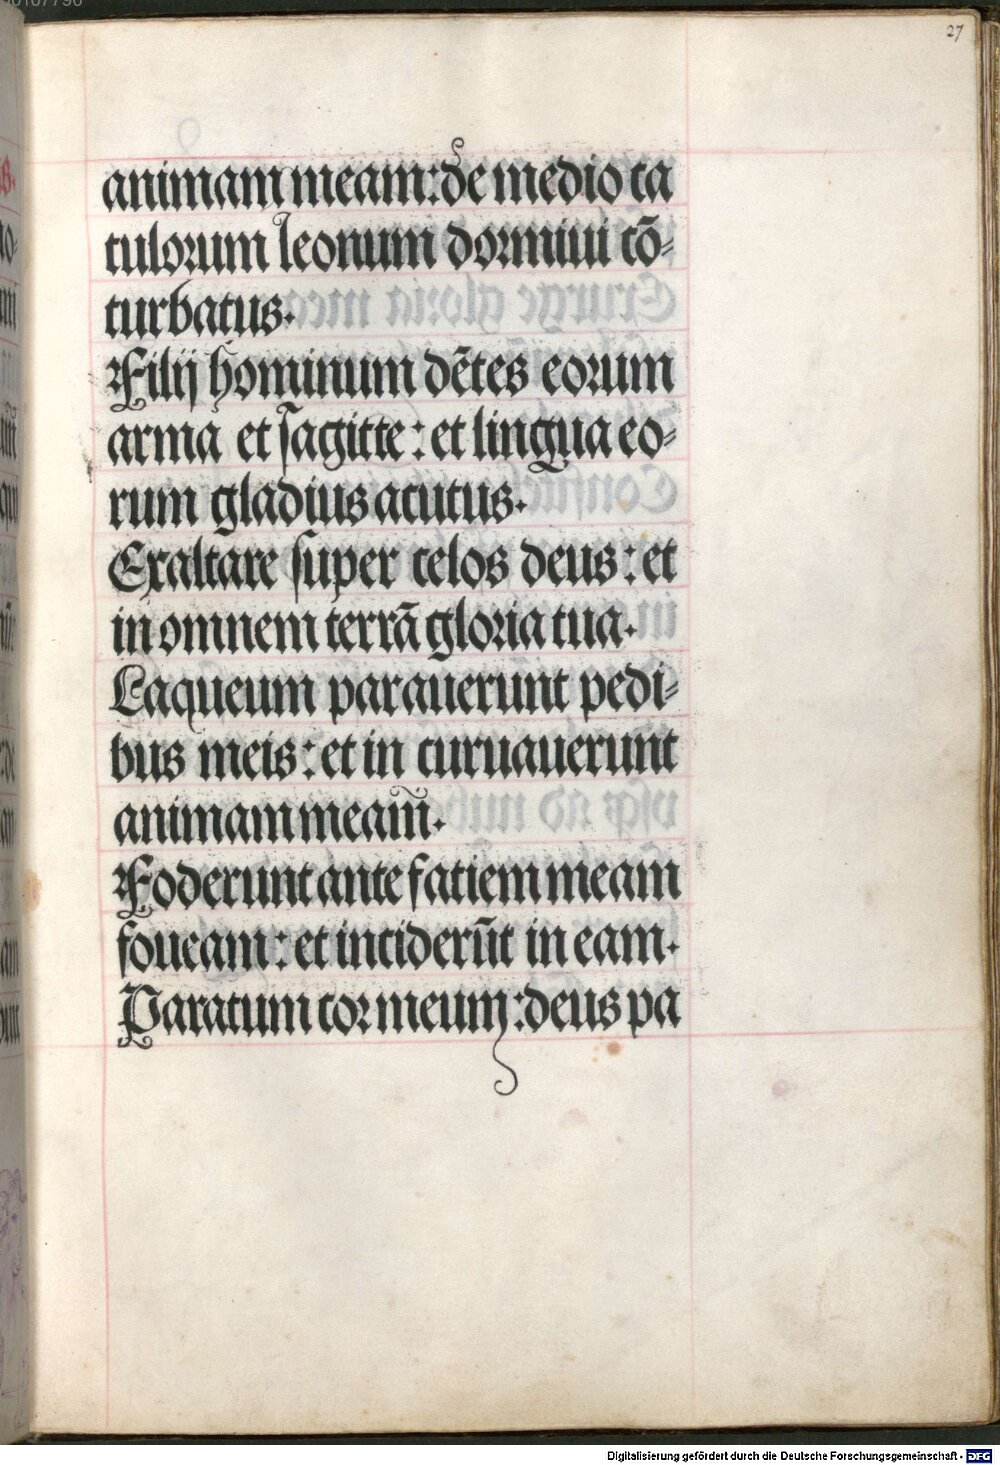 27
animam meam: de medio ca
tulorum leonum dormiui cō-
turbatus.
Filij hominum dētes eorum
arma et sagitte: et lingua eo-
rum gladius acutus.
Exaltare super celos deus: et
in omnem terrā gloria tua.
Laqueum parauerunt pedi-
bus meis: et in curuauerunt
animam meam̄.
Foderunt ante fatiem meam
foueam: et inciderūt in eam.
Paratum cor meum: deus pa
Digitalisierung gefördert durch die Deutsche Forschungsgemeinschaft - DFG